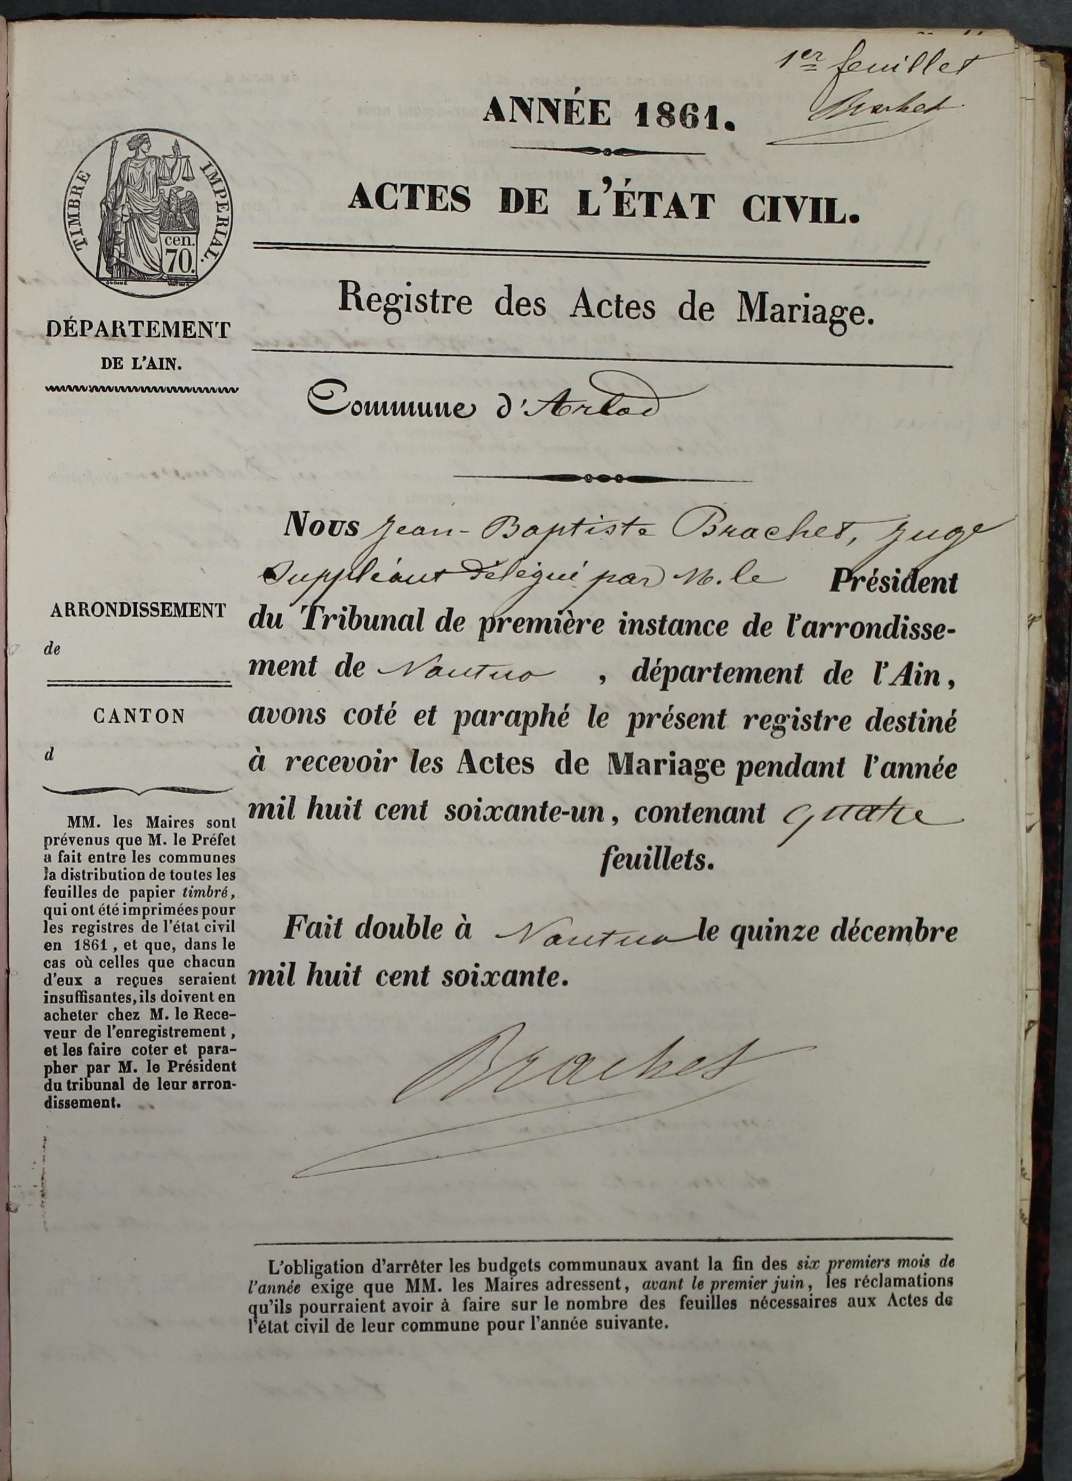 1er feuillet
Brachet
ANNÉE 1861.
ACTES DE L'ÉTAT CIVIL.
TIMBRE IMPERIAL.
cen.
70.
DÉPARTEMENT
DE L'AIN.
Registre des Actes de Mariage.
Commune d'Arlod
Nous Jean-Baptiste Brachet, Juge
Suppléant délégué par M. le Président
du Tribunal de première instance de l'arrondisse-
ment de Nantua, département de l'Ain,
avons coté et paraphé le présent registre destiné
à recevoir les Actes de Mariage pendant l'année
mil huit cent soixante-un, contenant quatre
feuillets.
Fait double à Nantua le quinze décembre
mil huit cent soixante.
Brachet
ARRONDISSEMENT
de
CANTON
d
MM. les Maires sont
prévenus que M. le Préfet
a fait entre les communes
la distribution de toutes les
feuilles de papier timbré,
qui ont été imprimées pour
les registres de l'état civil
en 1861, et que, dans le
cas où celles que chacun
d'eux a reçues seraient
insuffisantes, ils doivent en
acheter chez M. le Rece-
veur de l'enregistrement,
et les faire coter et para-
pher par M. le Président
du tribunal de leur arron-
dissement.
L'obligation d'arrêter les budgets communaux avant la fin des six premiers mois de
l'année exige que MM. les Maires adressent, avant le premier juin, les réclamations
qu'ils pourraient avoir à faire sur le nombre des feuilles nécessaires aux Actes de
l'état civil de leur commune pour l'année suivante.